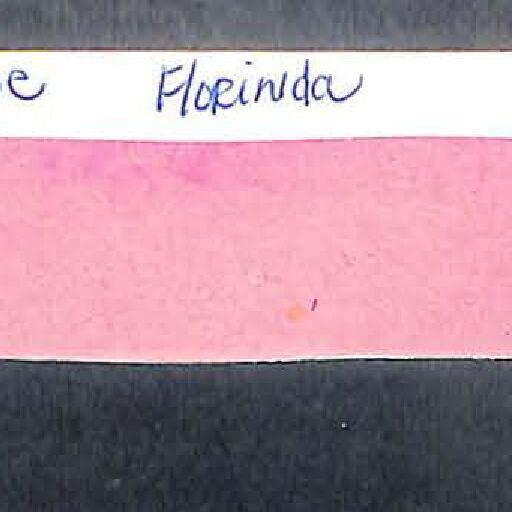 e Florinda